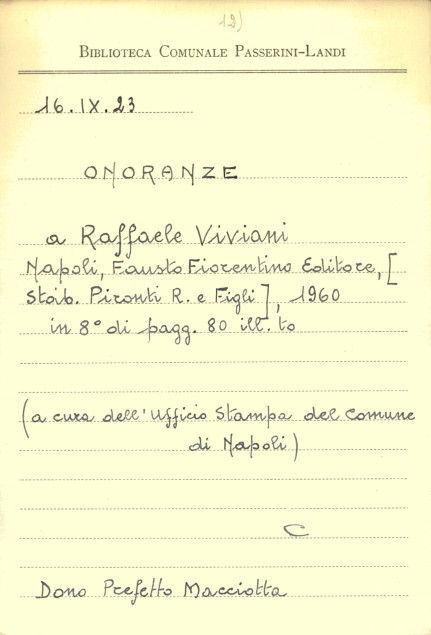 12)
BIBLIOTECA COMUNALE PASSERINI-LANDI
16.IX.23
ONORANZE
a Raffaele Viviani
Napoli, Fausto Fiorentino Editore, [
Stab. Pironti R. e Figli], 1960
in 8° di pagg. 80 ill.to
(a cura dell'Ufficio Stampa del Comune
di Napoli)
C
Dono Prefetto Macciotta